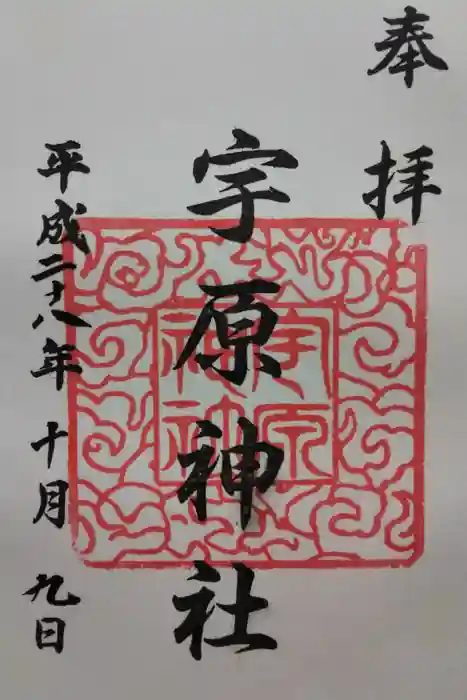 奉拝
宇原神社
宇原
神社
平成二十八年 十月 九日